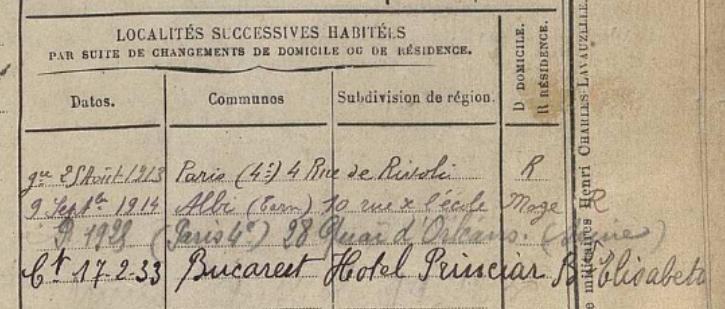 LOCALITÉS SUCCESSIVES HABITÉES
PAR SUITE DE CHANGEMENTS DE DOMICILE OU DE RÉSIDENCE.
Dates. Communes Subdivision de région. D DOMICILE. R RÉSIDENCE.
25 Août 1913 Paris (4e) 4 Rue de Rivoli R
9 Septbre 1914 Albi (Tarn) 10 rue l'école Mage R
P 1928 (Paris 4e) 28 Quai d'Orléans. (Seine)
Ct 17-2-33 Bucarest Hotel Princiar Bd Elisabeta
militaires Henri CHARLES-LAVAUZELLE.